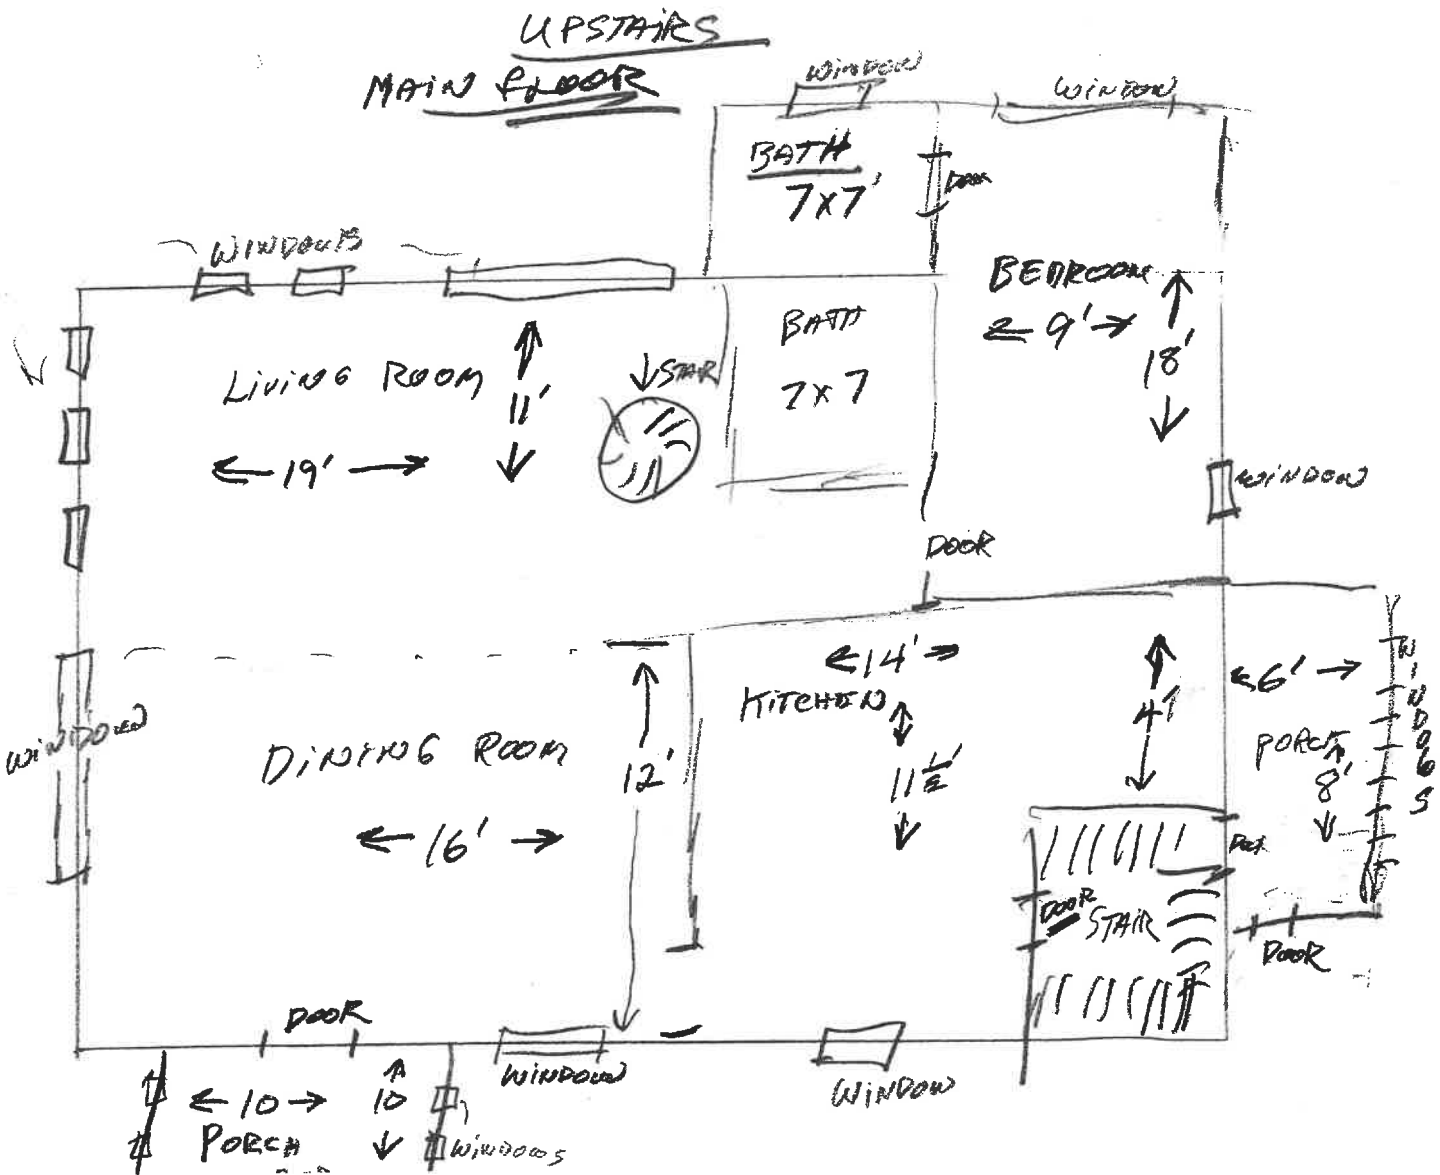 UPSTAIRS
MAIN FLOOR
WINDOW
WINDOW
BATH
7x7'
DOOR
WINDOWS
BEDROOM
9'
18'
LIVING ROOM
11'
19'
STAIR
BATH
7x7
WINDOW
DOOR
WINDOW
DINING ROOM
12'
16'
14'
KITCHEN
11 1/2'
4'
6'
PORCH
8'
WINDOWS
DOOR
DOOR
STAIR
DOOR
DOOR
WINDOW
WINDOW
10
10
PORCH
WINDOWS